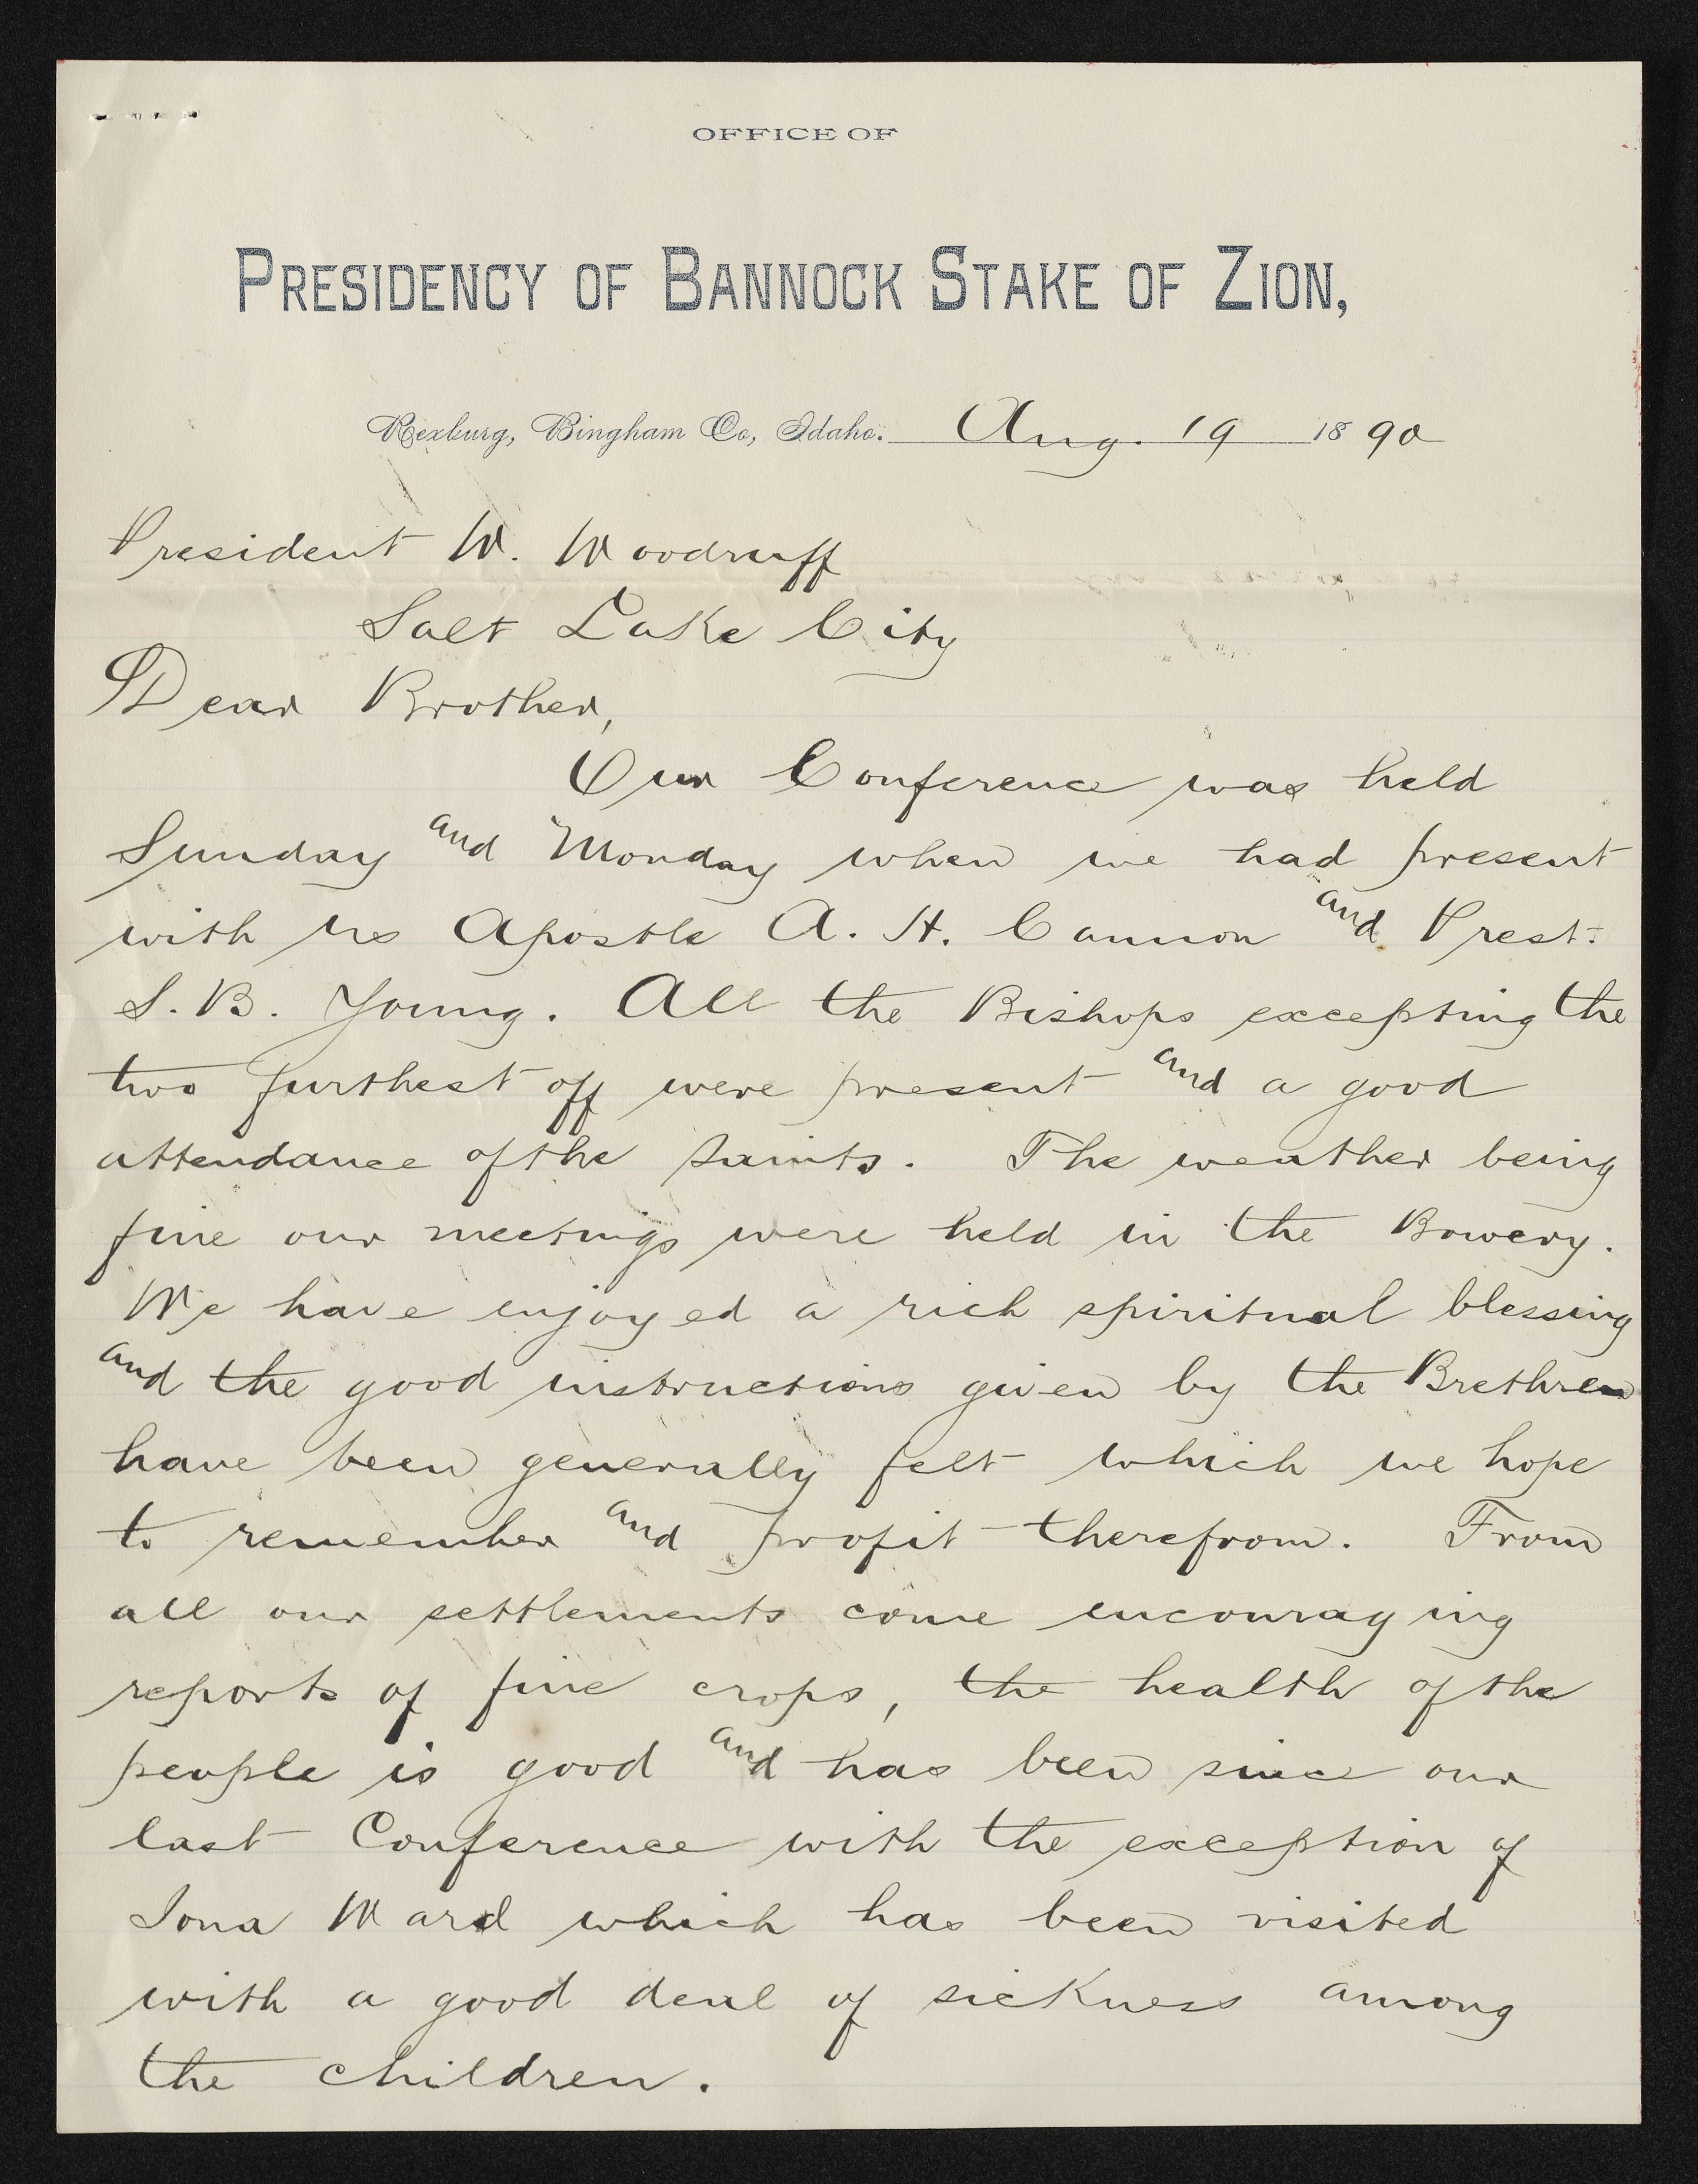 OFFICE OF
PRESIDENCY OF BANNOCK STAKE OF ZION,
Rexburg, Bingham Co, Idaho. Aug. 19 1890
President W. Woodruff
Salt Lake City
Dear Brother,
Our Conference was held
Sunday and Monday when we had present
with us Apostle A. H. Cannon and Prest.
S. B. Young. All the Bishops excepting the
two furthest off were present and a good
attendance of the saints. The weather being
fine our meetings were held in the Bowery.
We have enjoyed a rich spiritual blessing
and the good instructions given by the Brethren
have been generally felt which we hope
to remember and profit therefrom. From
all our settlements come encouraging
reports of fine crops, the health of the
people is good and has been since our
last Conference with the exception of
Iona Ward which has been visited
with a good deal of sickness among
the children.